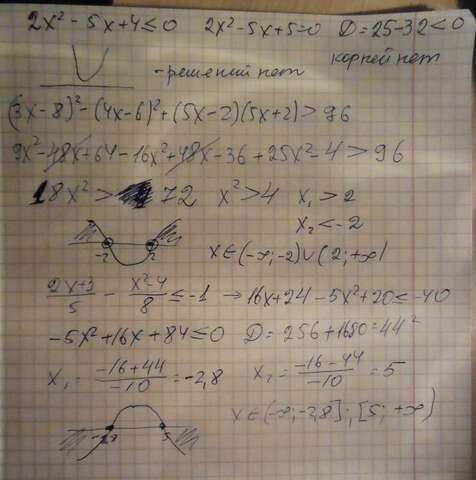 2x² - 5x + 4 ≤ 0   2x² - 5x + 5 = 0   D = 25 - 32 < 0
- решений нет   корней нет
(3x - 8)² - (4x - 6)² + (5x - 2)(5x + 2) > 96
9x² - 48x + 64 - 16x² + 48x - 36 + 25x² - 4 > 96
18x² > 72   x² > 4   x₁ > 2
x₂ < -2
-2   2
x ∈ (-∞; -2) ∪ (2; +∞)
(2x + 3)/5 - (x² - 4)/8 ≤ -1 → 16x + 24 - 5x² + 20 ≤ -40
-5x² + 16x + 84 ≤ 0   D = 256 + 1680 = 44²
x₁ = (-16 + 44)/(-10) = -2,8   x₂ = (-16 - 44)/(-10) = 5
x ∈ (-∞; -2,8] ; [5; +∞)
-2,8   5